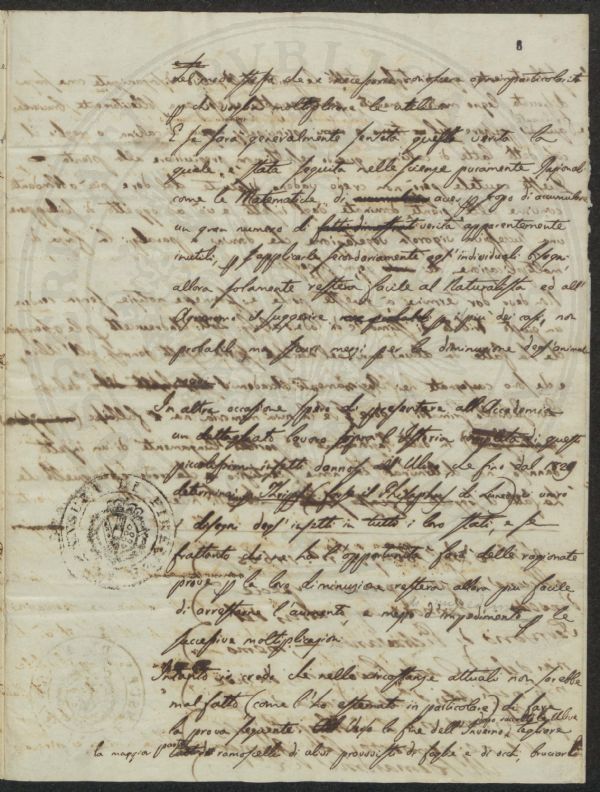 8
della meda stessa, che è necessario ogni particolarità
che voglia moltiplicare le
E se sarà generalmente sentata questa verità la
quale è stata seguita nelle scienze puramente Razionali
come le Matematiche, di aver p scopo di accumulare
un gran numero di fatti verità apparentemente
inutili, p applicarle secondariamente agl'individuali bisogni
allora solamente resterà facile al Naturalista ed all'
Agronomo il suggerire p i più dei casi, non
probabili ma sicuri mezzi per la diminuzione degl'animali
In altra occasione spero di presentare all'Accademia
un dettagliato lavoro sopra l'Istoria completa di questi
piccolissimi insetti dannosi all'Ulivo che fino dal 1829
determinai p Thrips (forse il Thrips physapus di Linneo) unirò
i disegni degl'insetti in tutti i loro stati, e se
frattanto che ne ho l'opportunità farò delle ragionate
prove p la loro diminuzione resterà allora più facile
di arrestarne l'aumento, e mezzo d'impedimento p le
successive moltiplicazioni
Intanto io credo che nelle circostanze attuali non sarebbe
mal fatto (come l'ho esternato in particolare) di fare
la prova seguente dopo raccolte le Ulive
dopo la fine dell'Inverno, tagliare
la maggior parte ramoscelli di ulivi provvisti di foglie e di occhi, bruciarli